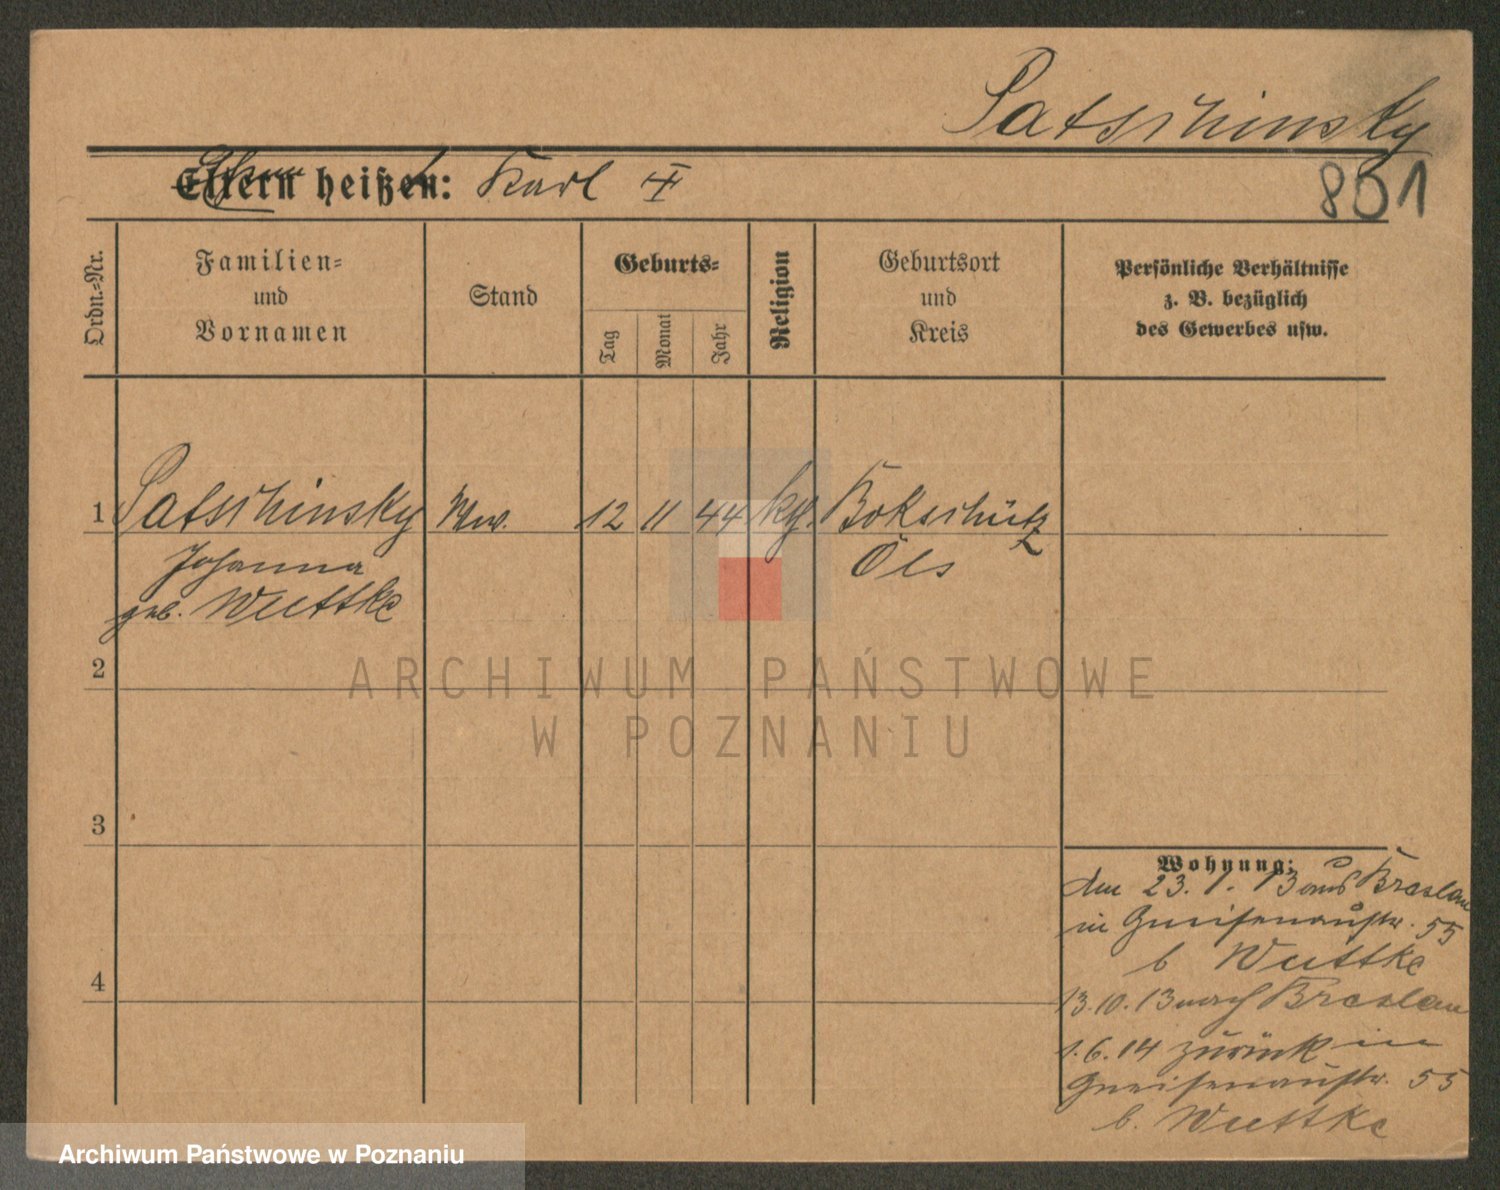 Patschinsky
Eltern heißen: Karl
801
Ordn.-Nr.
Familien=
und
Vornamen
Stand
Geburts=
Tag
Monat
Jahr
Religion
Geburtsort
und
Kreis
Persönliche Verhältnisse
z. B. bezüglich
des Gewerbes usw.
1 Patschinsky Ww. 12 11 44 Bokschütz
Johanna Öls
geb. Wuttke
2
ARCHIWUM PAŃSTWOWE
W POZNANIU
3
Wohnung:
den 23. 1. 13 aus Breslau
in Gneisenaustr. 55
b Wuttke
4
13.10.13 nach Breslau
1.6.14 zurück in
Gneisenaustr. 55
b. Wuttke
Archiwum Państwowe w Poznaniu